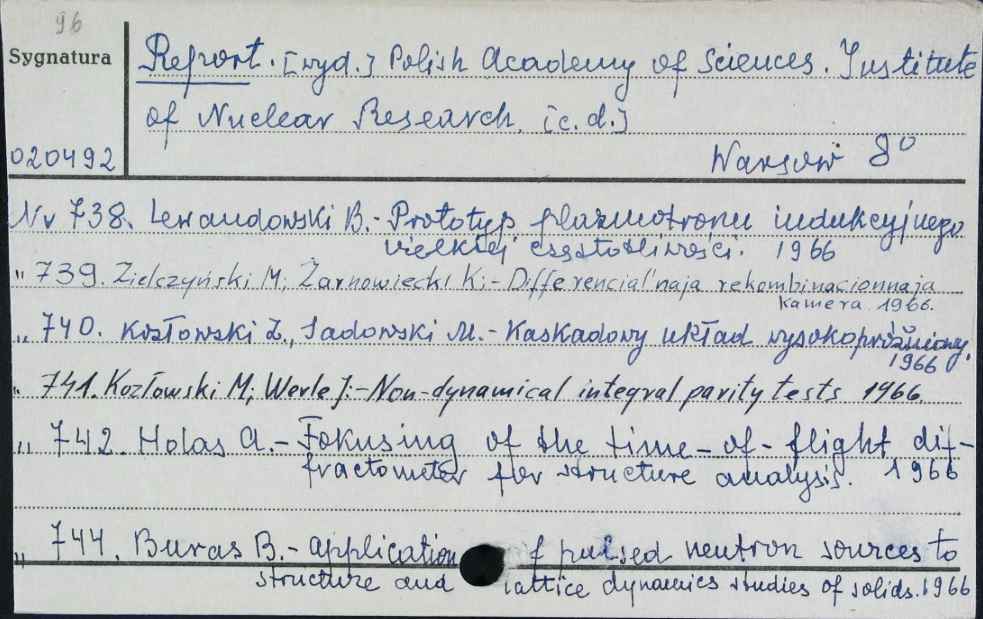 96
Sygnatura
Report. [wyd.] Polish Academy of Sciences. Institute
of Nuclear Research. [c.d.]
020492
Warsow 8°
Nr 738. Lewandowski B.- Prototyp plazmotronu indukcyjnego
wielkiej częstotliwości. 1966
„ 739. Zielczyński M; Żarnowiecki K;- Differencial'naja rekombinacionnaja
kamera 1966.
„ 740. Kozłowski Z., Sadowski M.- Kaskadowy układ wysokopróżniowy.
1966
„ 741. Kozłowski M; Werle J:- Non-dynamical integral parity tests 1966.
„ 742. Holas A.- Fokusing of the time-of-flight dif-
fractometer for structure analysis. 1966
„ 744. Buras B.- Application of pulsed neutron sources to
structure and lattice dynamics studies of solids. 1966